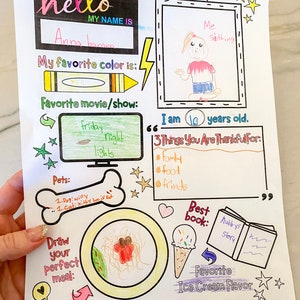 hello
MY NAME IS
Anna
Me
My favorite color is:
Favorite movie/show:
friday
night
lights
I am 10 years old.
3 Things You Are Thankful For:
family
food
friends
Pets:
1. Dog
Best
book:
Draw
your
perfect
meal:
Favorite
Ice Cream Flavor